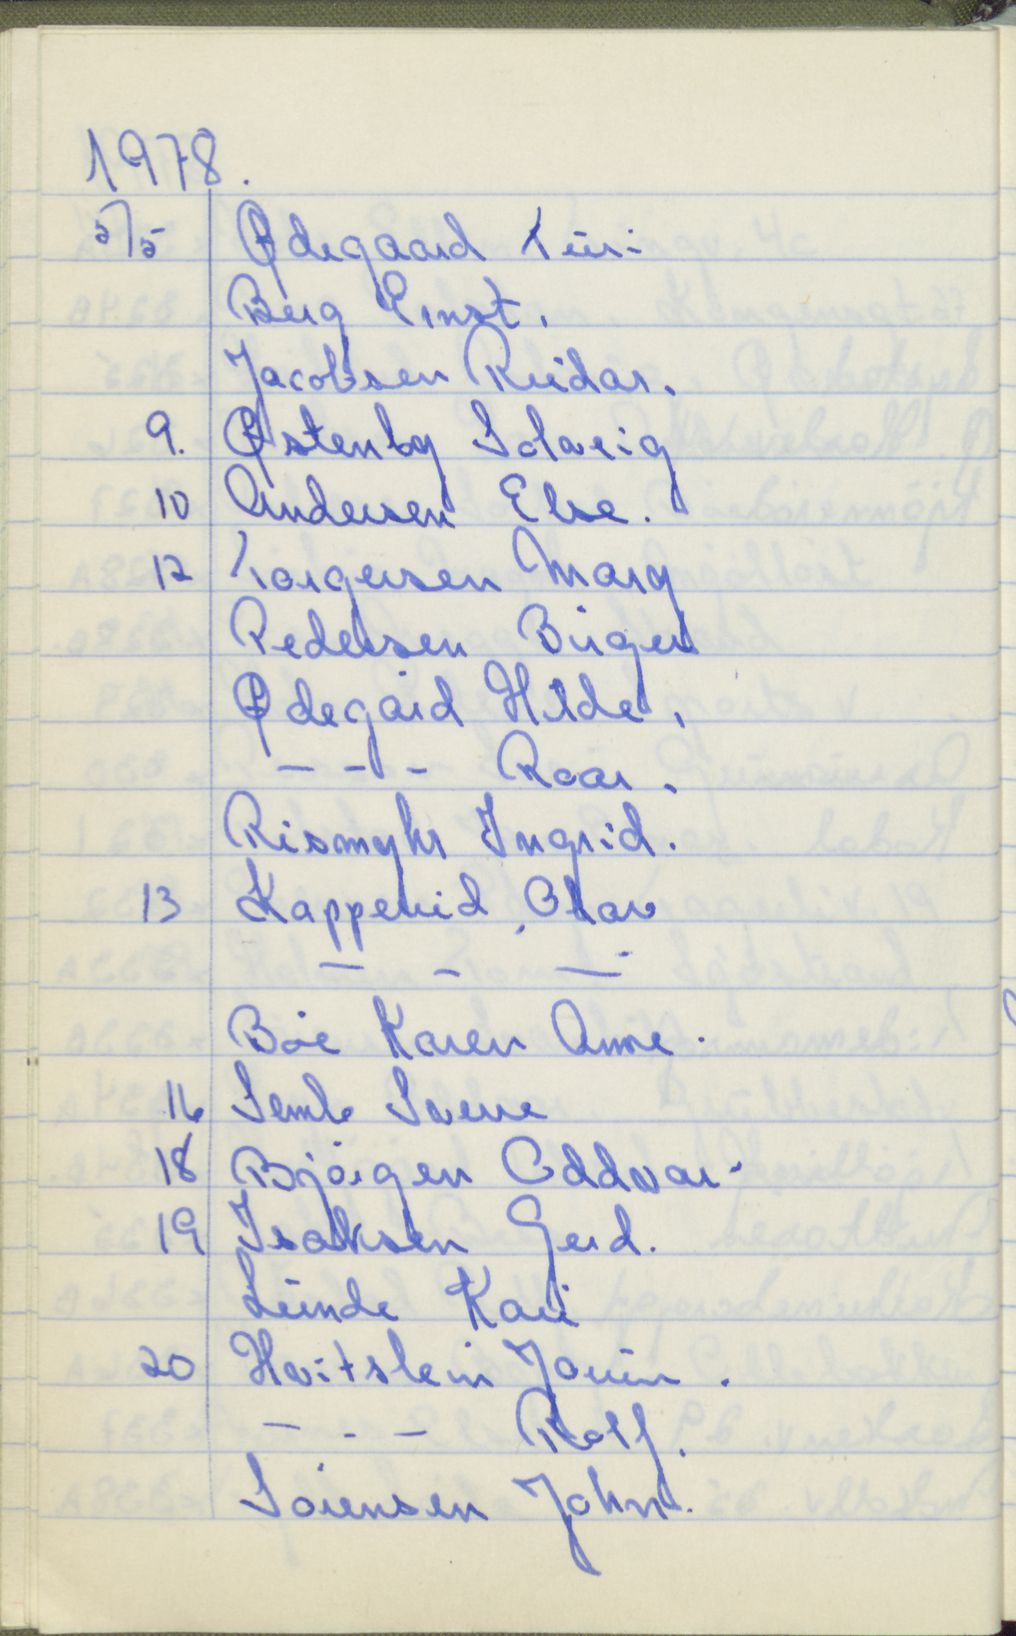 1978.
5/5 Ødegaard Turi
Berg Ernst.
Jacobsen Reidar.
9. Østenby Solveig
10 Andersen Else.
12 Torgersen Mary
Pedersen Birger
Ødegård Hilde.
— - - Roar.
Rismyhr Ingrid.
13 Kapperud, Olav
— - —
Bøe Karen Anne.
16 Semb Sverre
18 Bjørgen Oddvar.
19 Isaksen Gerd.
Lunde Kari
20 Hvitstein Jorun.
— - — Rolf.
Sørensen John.